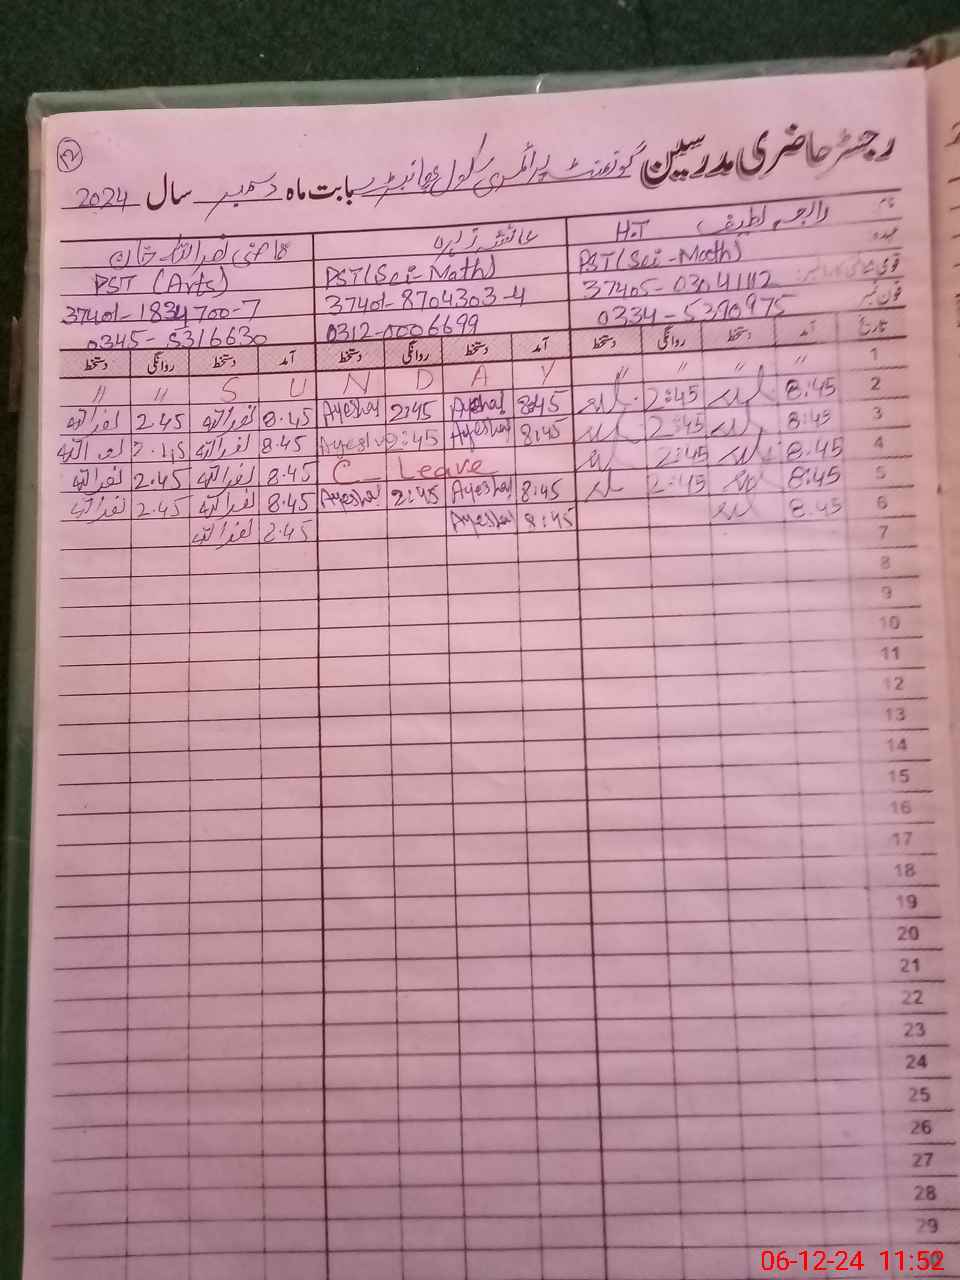 12
رجسٹر حاضری مدرسین گورنمنٹ پرائمری سکول بابت ماہ دسمبر سال 2024
نام رابعہ لطیف H.T عائشہ زہرہ قاضی نصراللہ خان
عہدہ PST(Sci-Math) PST(Sci-Math) PST (Arts)
قومی شناختی کارڈ نمبر 37405-03041112 37401-8704303-4 37401-1834700-7
فون نمبر 0334-5390975 0312-0006699 0345-5316630
تاریخ آمد دستخط روانگی دستخط آمد دستخط روانگی دستخط آمد دستخط روانگی دستخط
1 " " " " S U N D A Y " "
2 8:45 2:45 8:45 Ayesha 2:45 Ayesha 8.45 2.45
3 8:45 2:45 8:45 Ayesha 2:45 Ayesha 8.45
4 8.45 2:45 C_Leave 8.45 2.45
5 8:45 2:45 8:45 Ayesha 2:45 Ayesha 8.45 2.45
6 8.45 8:45 Ayesha
7
8
9
10
11
12
13
14
15
16
17
18
19
20
21
22
23
24
25
26
27
28
29
30
06-12-24 11:52